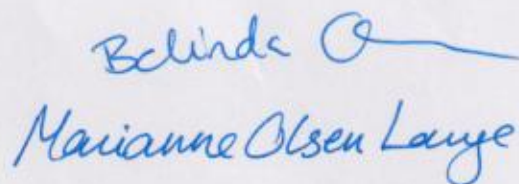 Belinda
Marianne Olsen Lauge